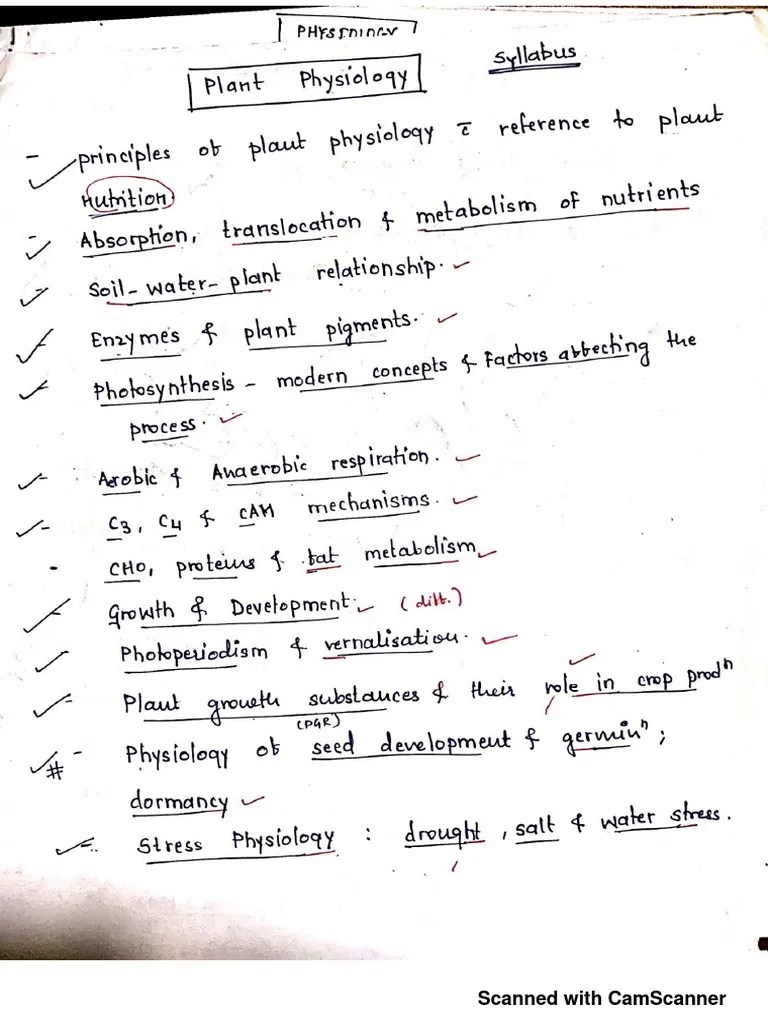 Plant Physiology
Syllabus
- principles of plant physiology c̄ reference to plant
Nutrition
- Absorption, translocation & metabolism of nutrients
- Soil-water-plant relationship.
- Enzymes & plant pigments.
- Photosynthesis - modern concepts & Factors affecting the
process.
- Aerobic & Anaerobic respiration.
- C3, C4 & CAM mechanisms.
· CHO, proteins & fat metabolism
- Growth & Development. (diff.)
- Photoperiodism & vernalisation.
- Plant growth substances & their role in crop prodⁿ
(PGR)
# - Physiology of seed development & germinⁿ ;
dormancy
- Stress Physiology : drought, salt & water stress.
Scanned with CamScanner